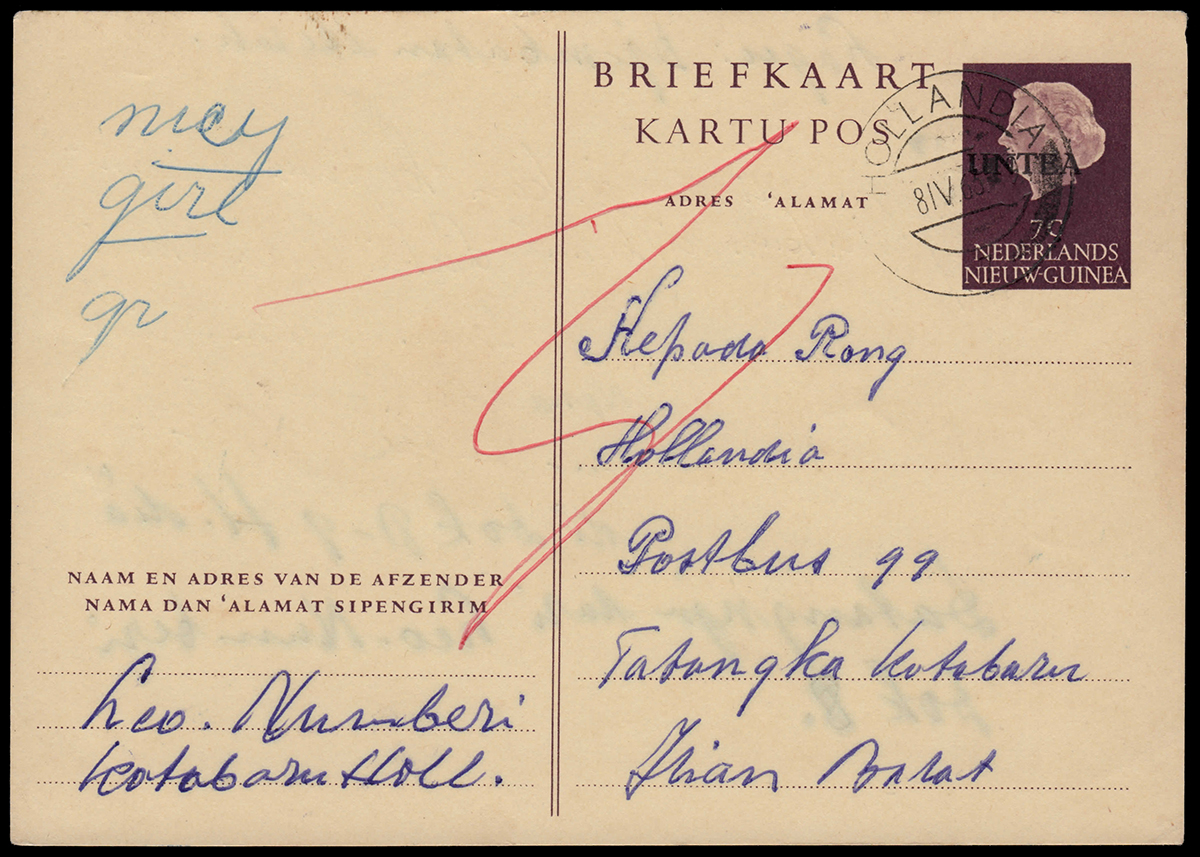 BRIEFKAART
KARTU POS
ADRES ‘ALAMAT
HOLLANDIA
8 IV
UNTEA
7C
NEDERLANDS
NIEUW-GUINEA
nicy
girl
gr
Kepada Rong
Hollandia
Postbus 99
Tatangka Kotabaru
Irian Barat
NAAM EN ADRES VAN DE AFZENDER
NAMA DAN ‘ALAMAT SIPENGIRIM
Leo. Numberi
Kotabaru Holl.